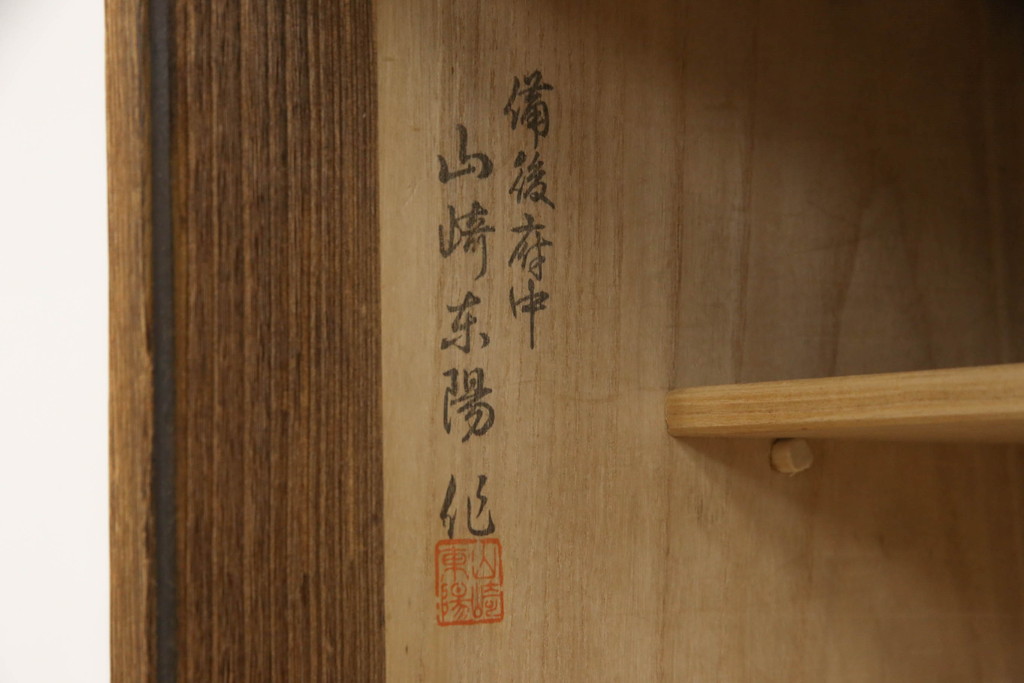 備後府中
山崎东陽 作
山崎
東陽